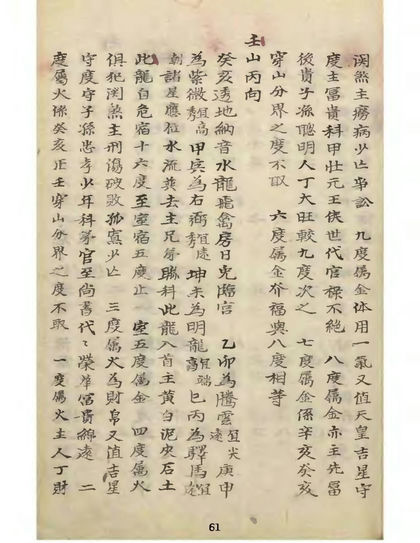 闲煞主癆病少亡爭訟　九度屬金体用一氣又值天皇吉星守
度主富貴科甲壯元王侯世代官祿不絕　八度屬金亦主先富
後貴子孫聰明人丁大旺較九度次之　七度屬金係辛亥癸亥
穿山分界之度不取　六度屬金發福與八度相等
壬山丙向
癸亥透地納音水龍龍禽房日兔臨官　乙卯為騰雲宜尖遠庚申
為紫微宜秀高甲寅為右弼宜秀遠坤未為明龍宜端高巳丙為驛馬宜
朝諸星應位水流巽去主兄弟聯科此龍入首主黃白泥夾石土
此龍自危宿十六度至室宿五度止　室五度屬金　四度屬火
俱犯闲煞主刑傷破敗孤寡少亡　三度屬火為財帛又值吉星
守度守子孫忠孝少年科第官至尚書代々榮華富貴綿遠　二
度屬火係癸亥正壬穿山分界之度不取　一度屬火主人丁財
61